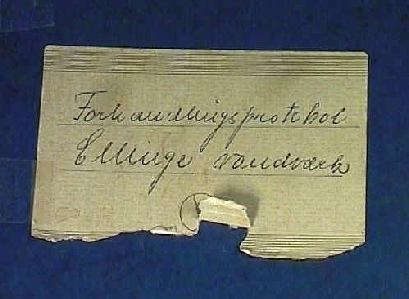 Forhandlingsprotokol
Ellinge vandværk